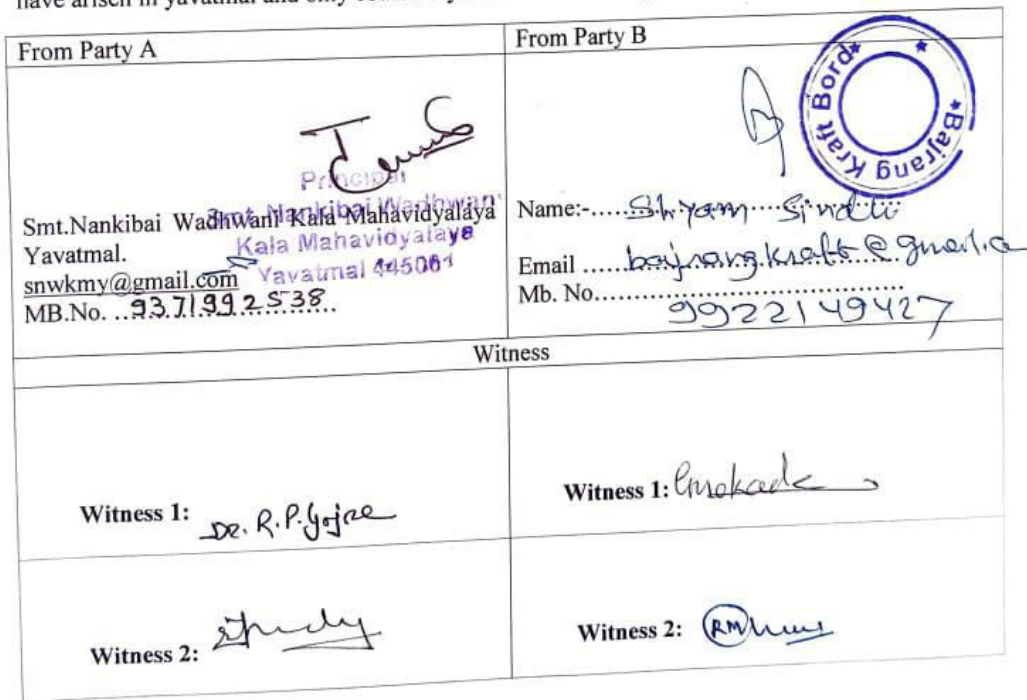 have arisen in yavatmal and only
From Party A
From Party B
Bajrang Kraft Bord
Principal
Smt. Nankibai Wadhwani
Kala Mahavidyalaya
Yavatmal 445001
Smt.Nankibai Wadhwani Kala Mahavidyalaya
Yavatmal.
snwkmy@gmail.com
MB.No. ..9371992538..........
Name:-.....Shyam
Email ......bajrangkraft@
Mb. No..................................
9922149427
Witness
Witness 1: Dr. R.P.
Witness 1:
Witness 2:
Witness 2: RM